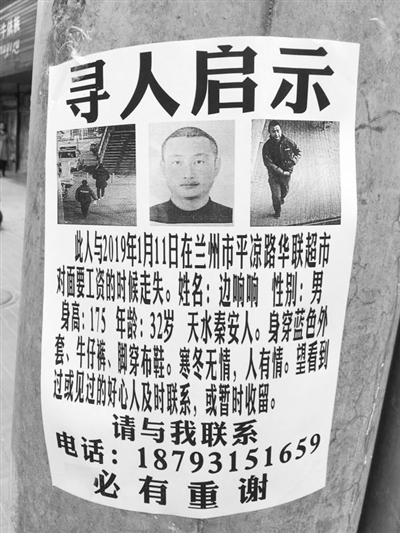 寻人启示
此人与2019年1月11日在兰州市平凉路华联超市
对面要工资的时候走失。姓名：边响响 性别：男
身高：175 年龄：32岁 天水秦安人。身穿蓝色外
套、牛仔裤、脚穿布鞋。寒冬无情，人有情。望看到
过或见过的好心人及时联系，或暂时收留。
请与我联系
电话：18793151659
必有重谢